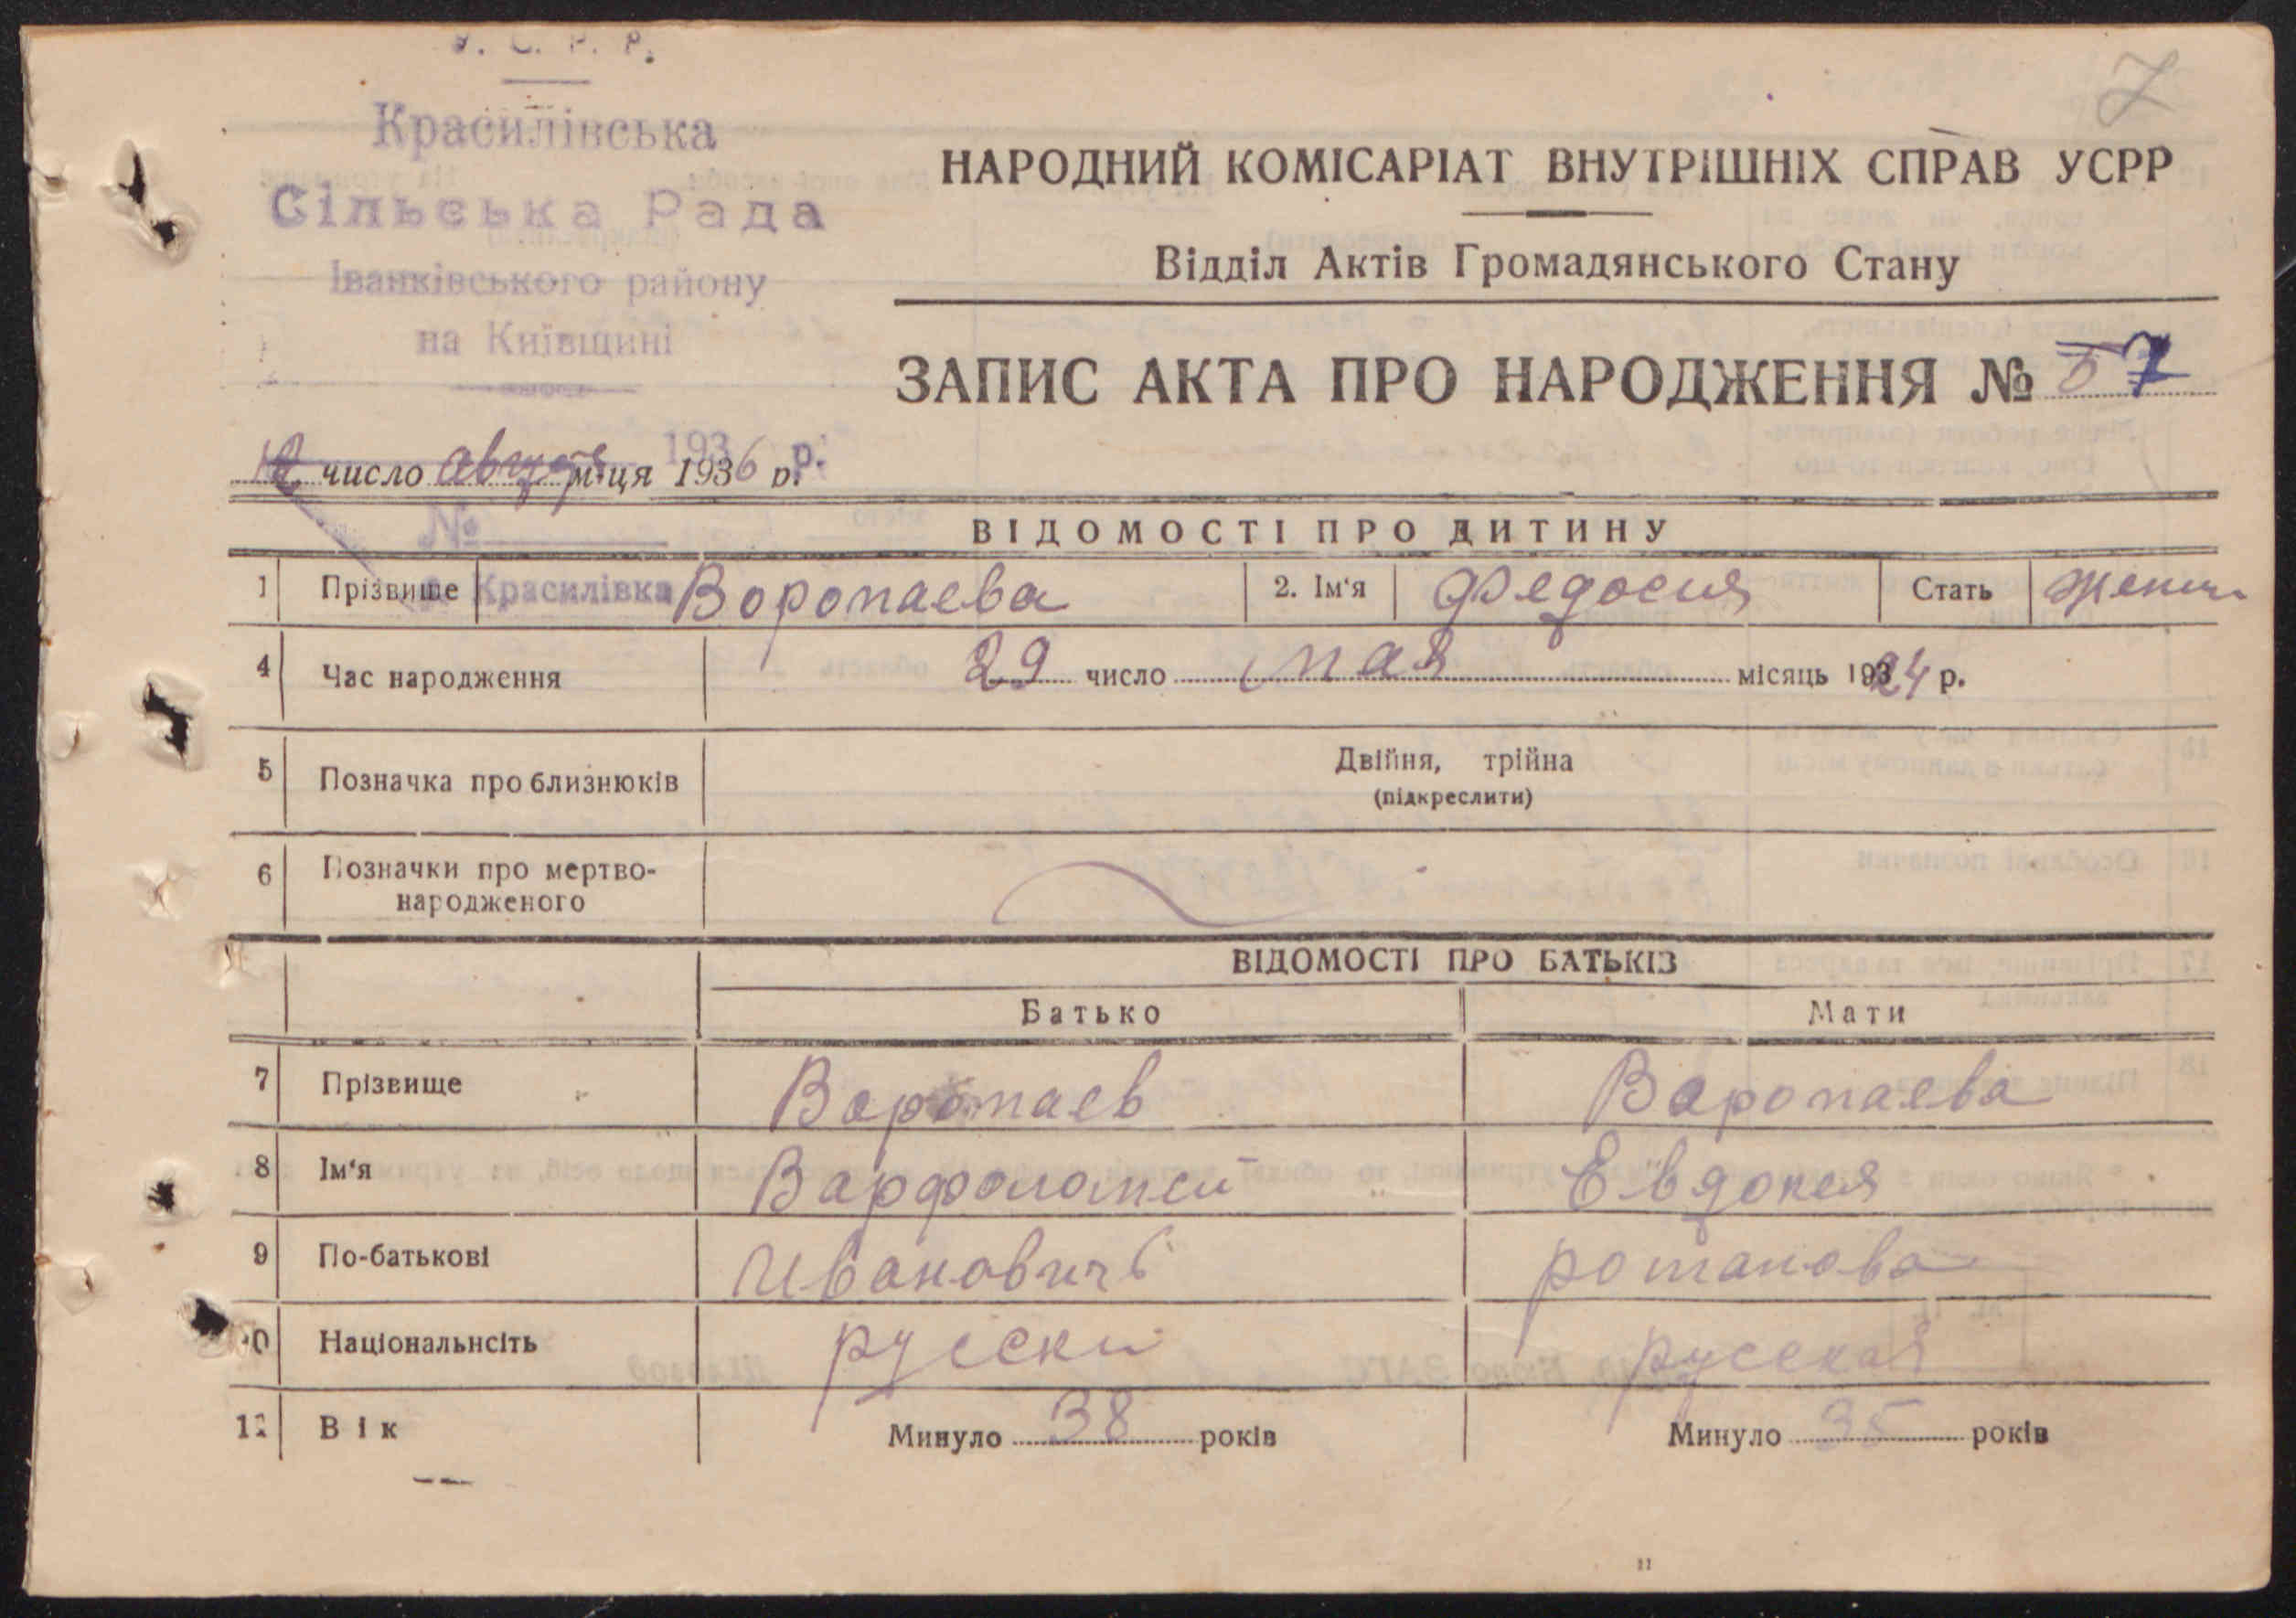 У. С. Р. Р.
7
Красилівська
Сільська Рада
Іванківського району
на Київщині
НАРОДНИЙ КОМІСАРІАТ ВНУТРІШНІХ СПРАВ УСРР
Відділ Актів Громадянського Стану
ЗАПИС АКТА ПРО НАРОДЖЕННЯ № 7
193 р.
число августа м-ця 1936 р.
№
ВІДОМОСТІ ПРО ДИТИНУ
1 Прізвище Красилівка Воропаева 2. Ім'я Федосия Стать женщ
4 Час народження 29 число мая місяць 1924 р.
5 Позначка про близнюків Двійня, трійна
(підкреслити)
6 Позначки про мертво-
народженого
ВІДОМОСТІ ПРО БАТЬКІВ
Батько Мати
7 Прізвище Воропаев Воропаева
8 Ім'я Варфоломей Евдокея
9 По-батькові Ивановичь романова
10 Національнсіть русски русская
12 Вік Минуло 38 років Минуло 35 років
11